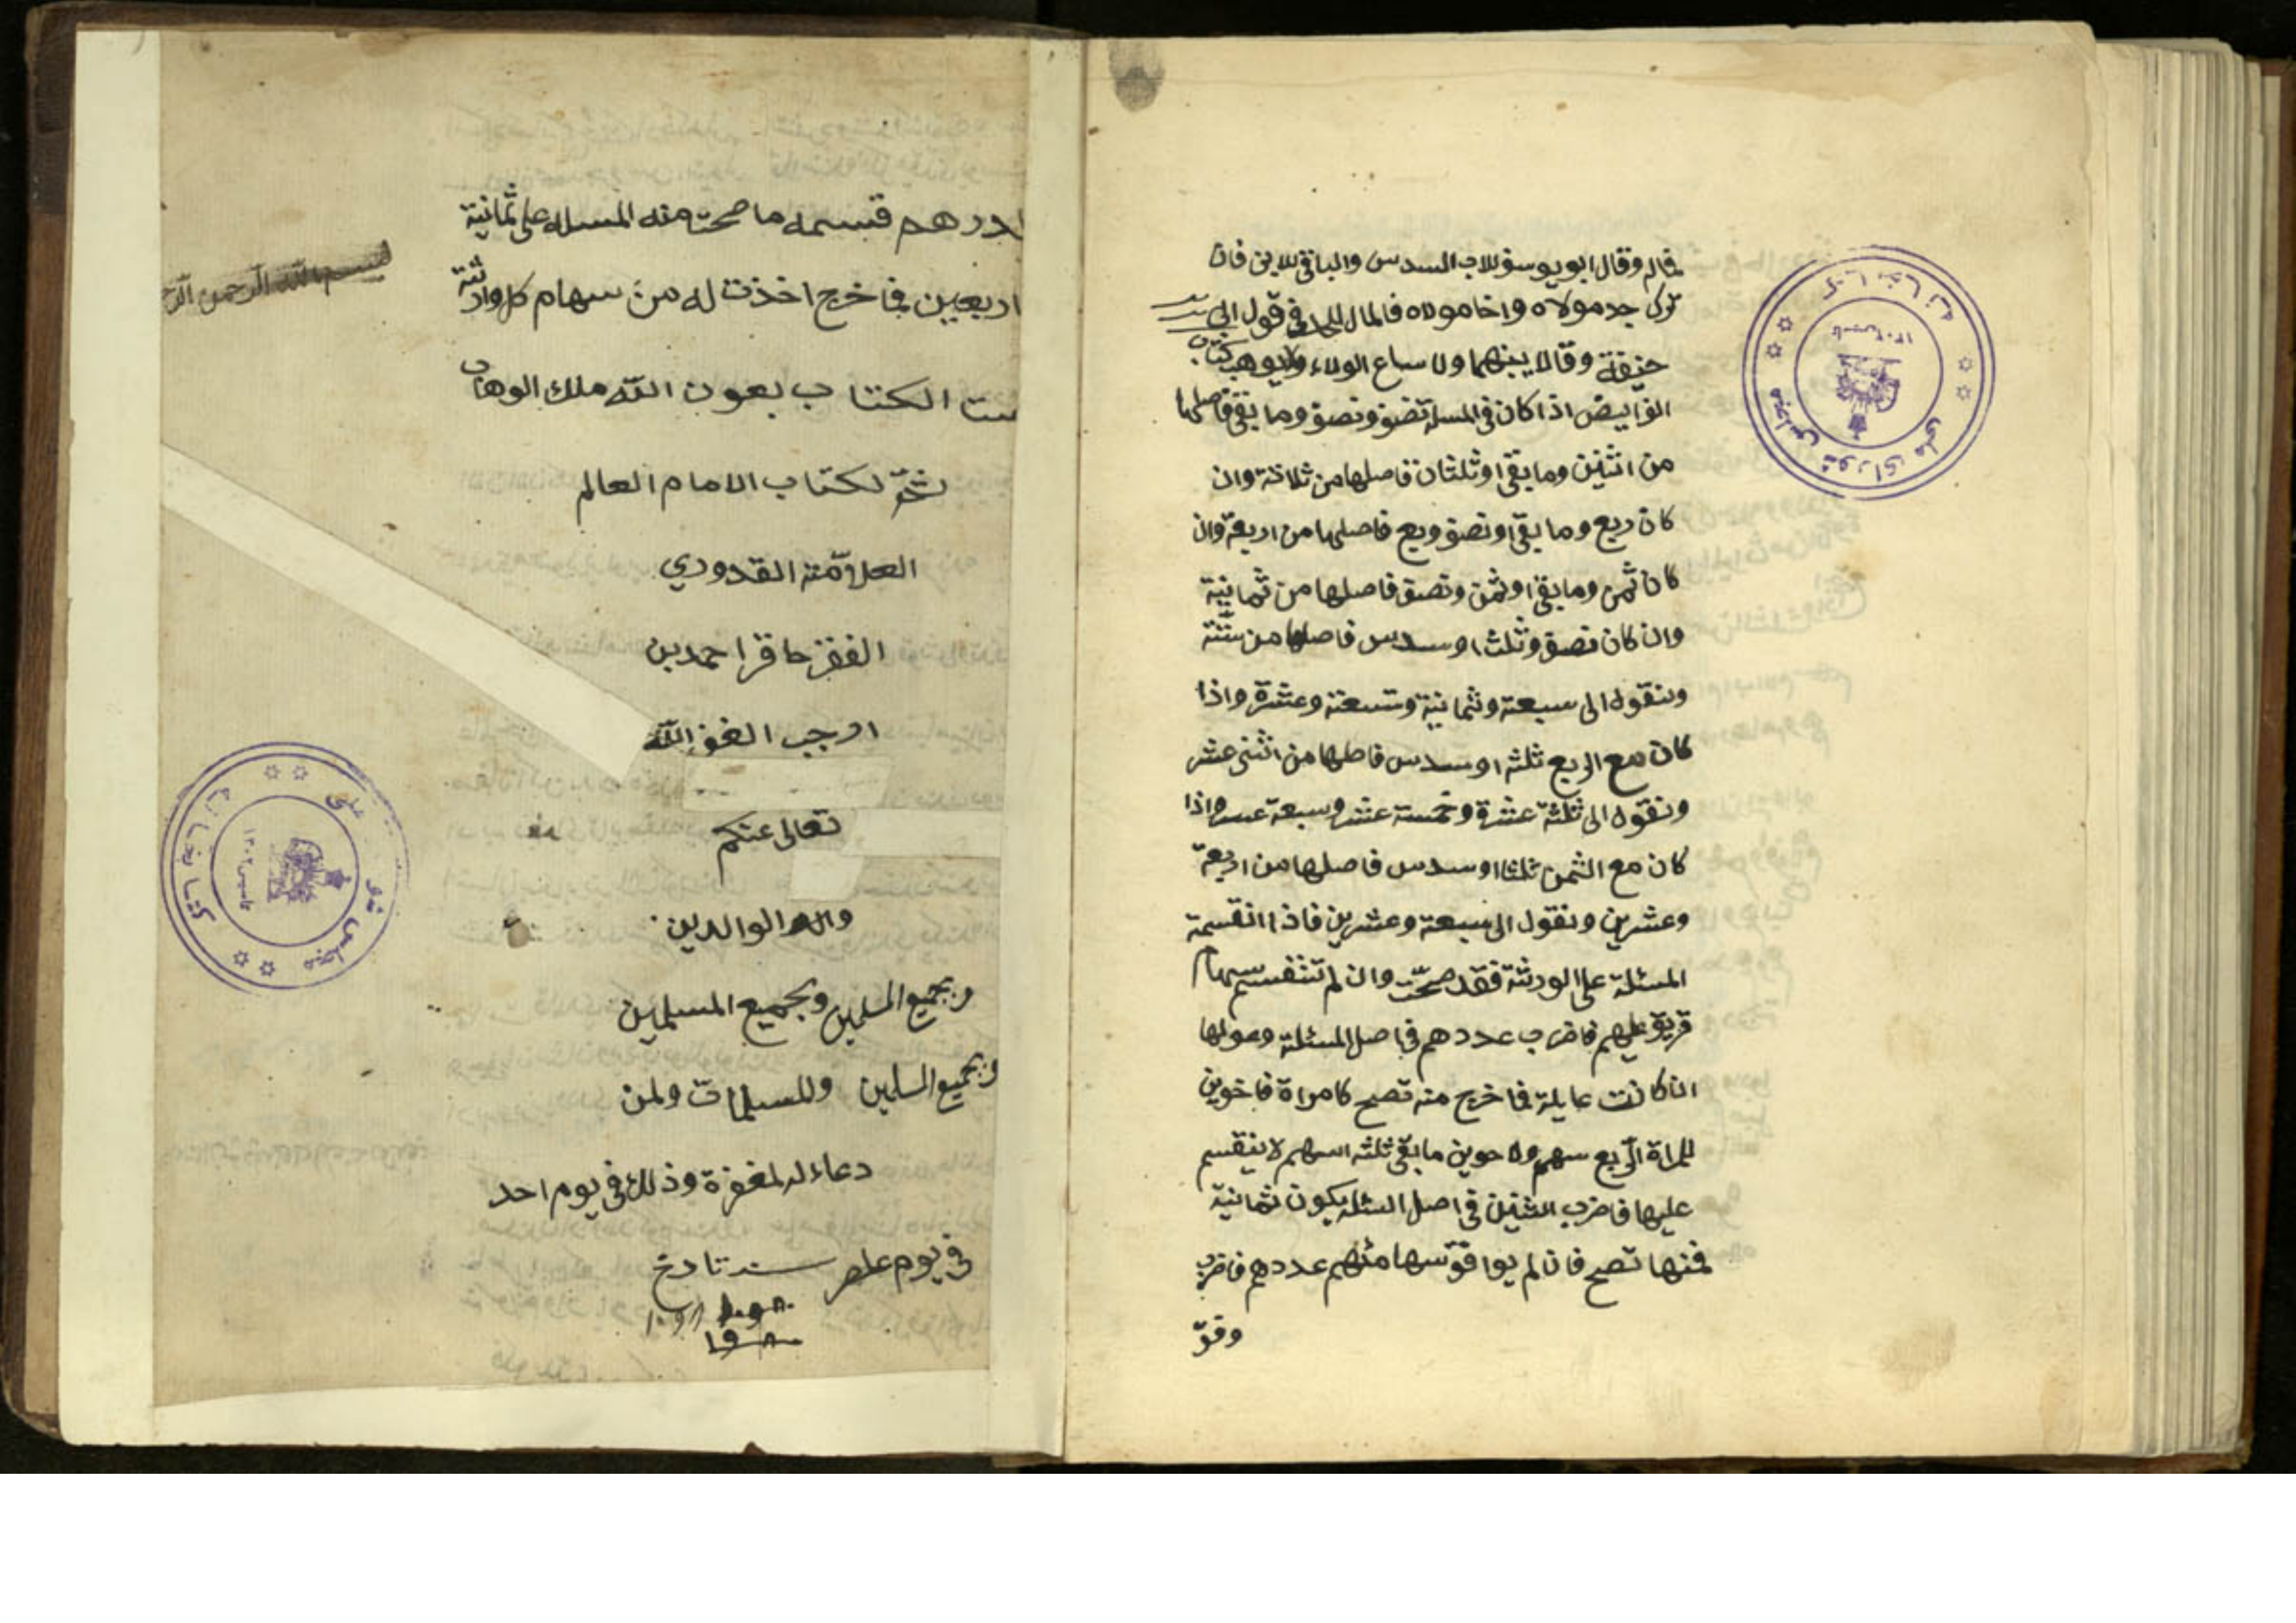 فالم وقال ابو يوسف للاب السدس والباقي للابن فان
ترك جد مولاه واخا مولاه فالمال للجد في قول ابي
حنيفة وقالا بينهما ولا يباع الولاء ولا يوهب كتاب
الفرايض اذا كان في المسلة نصف ونصف وما بقي فاصلها
من اثنين وما بقي او ثلثان فاصلها من ثلاثة وان
كان ربع وما بقي او نصف وربع فاصلها من اربعة وان
كان ثمن وما بقي او ثمن ونصف فاصلها من ثمانية
وان كان نصف وثلث او سدس فاصلها من ستة
وتقول الى سبعة وثمانية وتسعة وعشرة واذا
كان مع الربع ثلثه او سدس فاصلها من اثنى عشر
وتقول الى ثلثة عشرة وخمسة عشر وسبعة عسر واذا
كان مع الثمن ثلثا او سدس فاصلها من اربعة
وعشرين وتقول الى سبعة وعشرين فاذا انقسمة
المسئلة على الورثة فقد صحت وان لم تنقسم سهام
فريق عليهم فاضرب عددهم في اصل المسئلة وعولها
ان كانت عايلة فما خرج منه تصح كامراة فاخوين
للمراة الربع سهم ولاخوين ما بقي ثلثه اسهم لا ينقسم
عليها فاضرب اثنين في اصل المسئلة يكون ثمانية
فمنها تصح فان لم يوافق سهامهم عددهم فاضرب
وفق
درهم قسمه ما صحت منه المسله على ثمانية
اربعين فما خرج اخذت له من سهام كل وارثة
بسم الله الرحمن الرح
ت الكتاب بعون الله ملك الوهاب
لكتاب الامام العالم
العلامة القدوري
احمد بن
الله
تعالى عنكم
الوالدين
وبجميع المسلمين وبجميع المسلمين
وبجميع المسلمين وللمسلمات ولمن
دعاء له لمغفرة وذلك في يوم احد
في يوم عصر سنه تاريخ
كتابخانه مجلس شوراى ملى
كتابخانه مجلس شوراى ملى